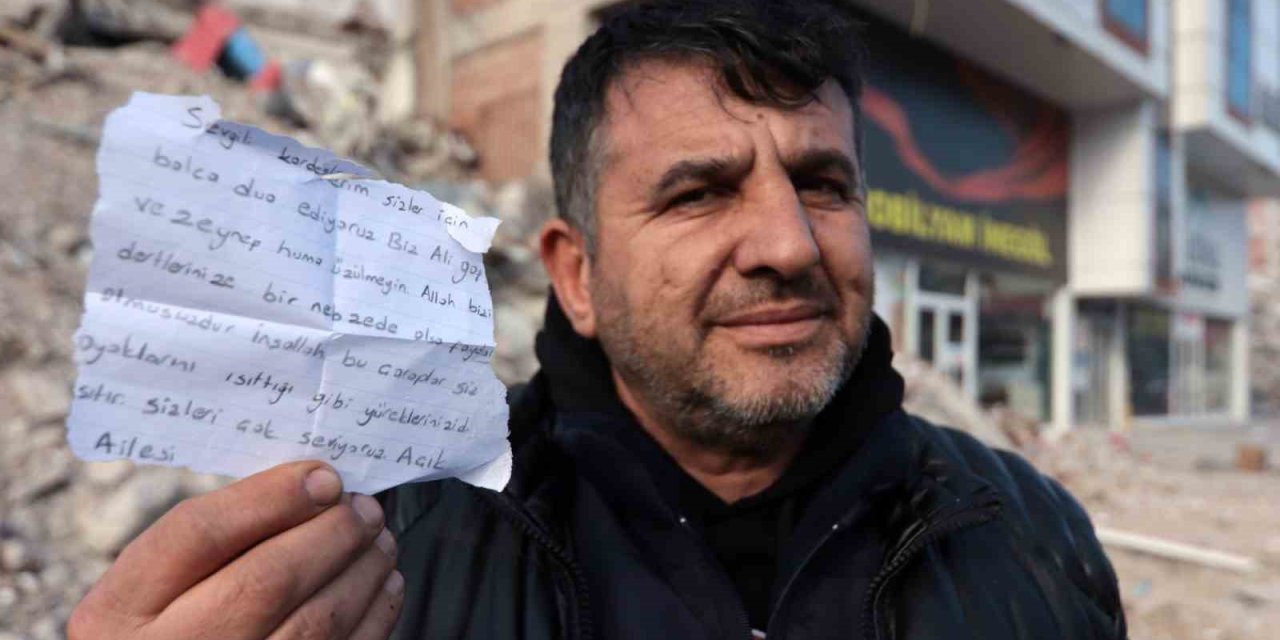 Sevgili kardeşlerim sizler için
bolca dua ediyoruz Biz Ali
ve zeynep huma üzülmeyin. Allah bizi
dertlerinize bir nebzede olsa
olmuşuzdur İnşallah bu çoraplar siz
ayaklarını ısıttığı gibi yüreklerinizid
sıtır. sizleri çok seviyoruz. Açık
Ailesi
OBİLYAM İNEGÖL